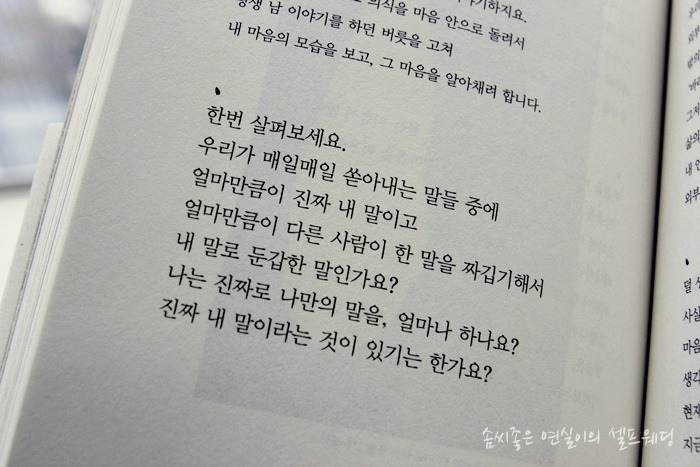 의식을 마음 안으로 돌려서
평생 남 이야기를 하던 버릇을 고쳐
내 마음의 모습을 보고, 그 마음을 알아채려 합니다.
한번 살펴보세요.
우리가 매일매일 쏟아내는 말들 중에
얼마만큼이 진짜 내 말이고
얼마만큼이 다른 사람이 한 말을 짜깁기해서
내 말로 둔갑한 말인가요?
나는 진짜로 나만의 말을, 얼마나 하나요?
진짜 내 말이라는 것이 있기는 한가요?
외부
그저
삶의
내 안
외부
덜
사실
마음
생각
현재
지금
솜씨좋은 연실이의 셀프웨딩